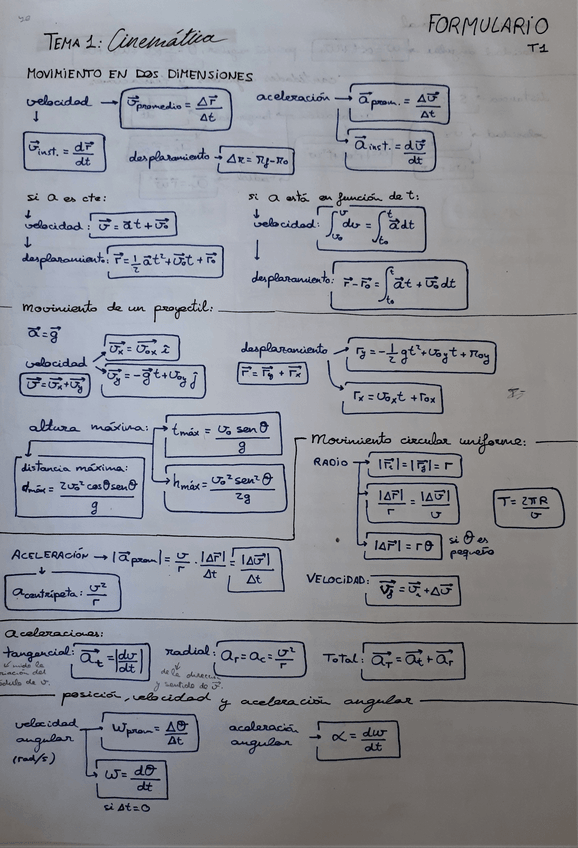 FORMULARIO
T1
TEMA 1: Cinemática
MOVIMIENTO EN DOS DIMENSIONES
velocidad → v⃗promedio = Δr⃗/Δt
aceleración → a⃗prom. = Δv⃗/Δt
v⃗inst. = dr⃗/dt
desplazamiento → Δr = rf - r0
a⃗inst. = dv⃗/dt
si a es cte:
velocidad: v⃗ = a⃗t + v⃗0
desplazamiento: r⃗ = 1/2 a⃗t² + v⃗0t + r⃗0
si a está en función de t:
velocidad: ∫v0^v dv = ∫t0^t a⃗dt
desplazamiento: r⃗ - r⃗0 = ∫t0^t a⃗t + v⃗0dt
Movimiento de un proyectil:
a⃗ = g⃗
velocidad
v⃗ = v⃗x + v⃗y
v⃗x = v⃗ox î
v⃗y = -g⃗t + voy ĵ
desplazamiento
r⃗ = r⃗y + r⃗x
ry = -1/2 gt² + voyt + roy
rx = voxt + rox
T=
altura máxima:
tmáx = v0 senθ/g
hmáx = v0² sen²θ/2g
distancia máxima:
dmáx = 2v0² cosθsenθ/g
Movimiento circular uniforme:
RADIO → |r⃗i| = |r⃗f| = r
|Δr⃗|/r = |Δv⃗|/v
|Δr⃗| = rθ si θ es
pequeño
T = 2πR/v
VELOCIDAD: v⃗f = v⃗i + Δv⃗
ACELERACIÓN → |a⃗prom| = v/r · |Δr⃗|/Δt = |Δv⃗|/Δt
acentrípeta: v²/r
aceleraciones:
tangencial: a⃗t = |dv/dt|
mide la
módulo de v.
radial: ar = ac = v²/r
de la dirección
y sentido de v⃗.
TOTAL: a⃗T = a⃗t + a⃗r
posición, velocidad y aceleración angular
velocidad
angular
(rad/s)
wprom = Δθ/Δt
w = dθ/dt
si Δt=0
aceleración
angular → α = dw/dt